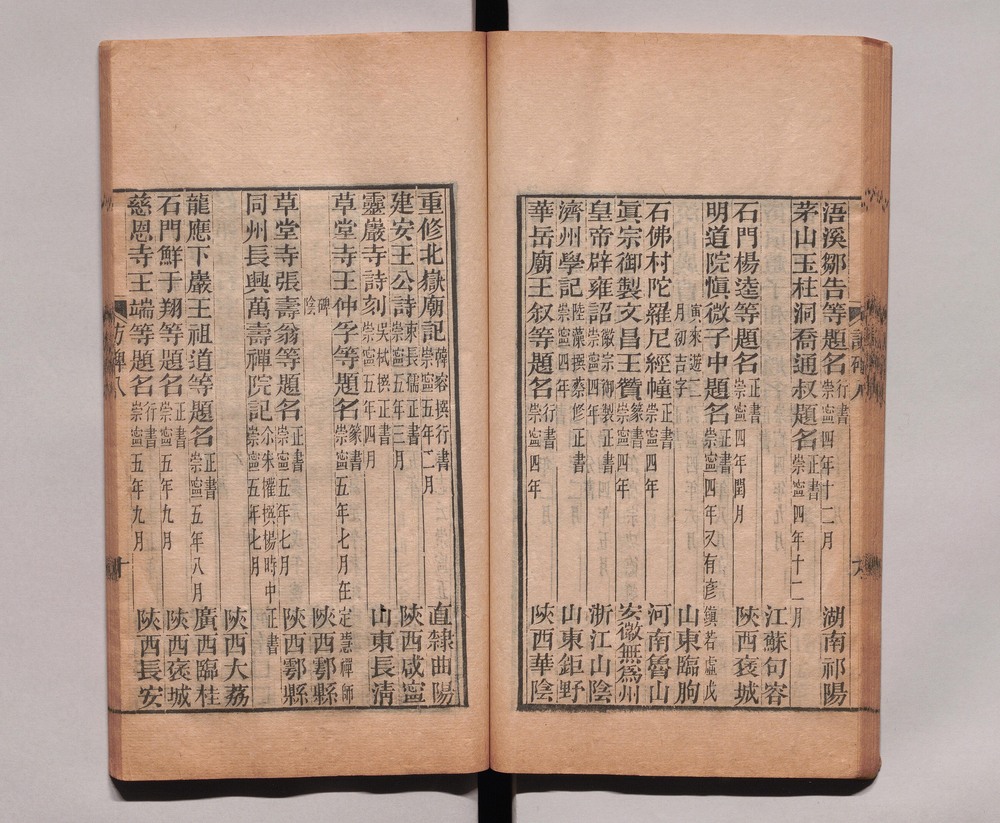 浯溪鄒告等題名行書崇寧四年十二月 湖南祁陽
茅山玉柱洞喬通叔題名正書崇寧四年十二月 江蘇句容
石門楊逵等題名正書崇寧四年閏月 陝西褒城
明道院愼微子中題名崇寧四年又有彥鎭若虛戊寅來遊三月初吉字 山東臨朐
石佛村陀羅尼經幢正書崇寧四年 河南魯山
眞宗御製文昌王贊篆書崇寧四年 安徽無爲州
皇帝辟雍詔徽宗御製正書崇寧四年 浙江山陰
濟州學記陸藻撰蔡修正書崇寧四年 山東鉅野
華岳廟王叙等題名行書崇寧四年 陝西華陰
重修北嶽廟記韓容撰行書崇寧五年二月 直隸曲陽
建安王公詩東長儒正書崇寧五年三月 陝西咸寧
靈巖寺詩刻吳栻撰正書崇寧五年四月 山東長清
草堂寺王仲孚等題名篆書崇寧五年七月在定慧禪師碑陰 陝西鄠縣
草堂寺張壽翁等題名正書崇寧五年七月 陝西鄠縣
同州長興萬壽禪院記尒朱權撰楊時中正書崇寧五年七月 陝西大荔
龍應下巖王祖道等題名正書崇寧五年八月 廣西臨桂
石門鮮于翔等題名正書崇寧五年九月 陝西褒城
慈恩寺王端等題名行書崇寧五年九月 陝西長安
方碑八
十